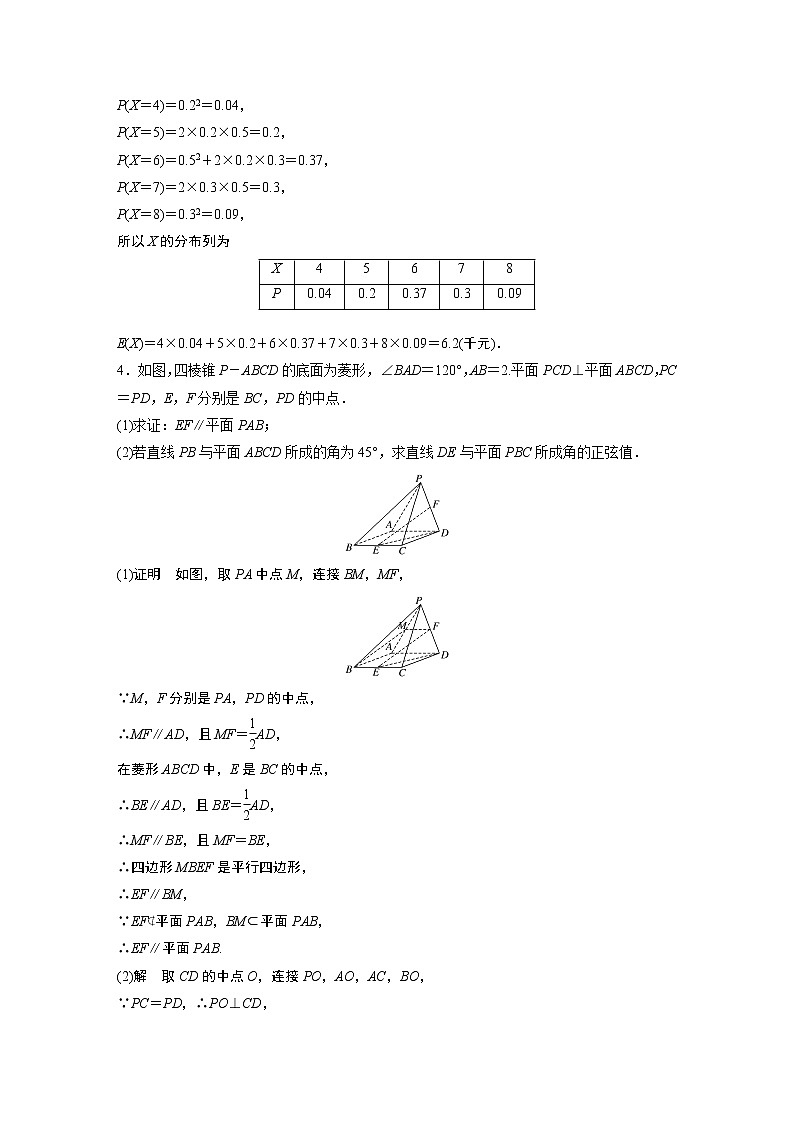 P(X＝4)＝0.2²＝0.04，
P(X＝5)＝2×0.2×0.5＝0.2，
P(X＝6)＝0.5²＋2×0.2×0.3＝0.37，
P(X＝7)＝2×0.3×0.5＝0.3，
P(X＝8)＝0.3²＝0.09，
所以X的分布列为
X 4 5 6 7 8
P 0.04 0.2 0.37 0.3 0.09
E(X)＝4×0.04＋5×0.2＋6×0.37＋7×0.3＋8×0.09＝6.2(千元)．
4．如图，四棱锥P－ABCD的底面为菱形，∠BAD＝120°，AB＝2.平面PCD⊥平面ABCD，PC
＝PD，E，F分别是BC，PD的中点．
(1)求证：EF∥平面PAB；
(2)若直线PB与平面ABCD所成的角为45°，求直线DE与平面PBC所成角的正弦值．
P
F
A
D
B E C
(1)证明　如图，取PA中点M，连接BM，MF，
P
M F
A
D
B E C
∵M，F分别是PA，PD的中点，
∴MF∥AD，且MF＝1/2AD，
在菱形ABCD中，E是BC的中点，
∴BE∥AD，且BE＝1/2AD，
∴MF∥BE，且MF＝BE，
∴四边形MBEF是平行四边形，
∴EF∥BM，
∵EF⊄平面PAB，BM⊂平面PAB，
∴EF∥平面PAB.
(2)解　取CD的中点O，连接PO，AO，AC，BO，
∵PC＝PD，∴PO⊥CD，